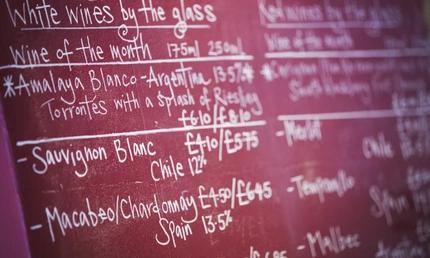 White wines by the glass
Wine of the month 175ml 250ml
*Amalaya Blanco - Argentina 13.5%
Torrontés with a splash of Riesling
£6.10/£8.10
- Sauvignon Blanc £4.10/£5.75
Chile 12%
- Macabeo/Chardonnay £4.50/£6.45
Spain 13.5%
Red wines by the glass
Wine of the month
- Merlot
Chile
- Tempranillo
Spain
- Malbec